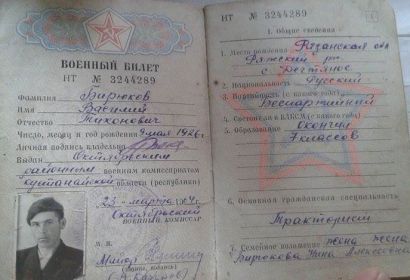 ВОЕННЫЙ БИЛЕТ
НТ № 3244289
Фамилия Бирюков
Имя Василий
Отчество Тихонович
Число, месяц и год рождения 9 мая 1926 г.
Личная подпись владельца
Выдан Октябрьским
районным военным комиссариатом
Кустанайской области (республики)
23 марта
Октябрьский
ВОЕННЫЙ КОМИССАР
М. П.
Майор
НТ № 3244289
I. Общие сведения
1. Место рождения Рязанская обл
Ряжский р-н
с.
2. Национальность Русский
3. Партийность (с какого года)
Беспартийный
4. Состоит ли в ВЛКСМ (с какого года)
5. Образование Окончил
7 классов
6. Основная гражданская специальность
Тракторист
7. Семейное положение жена
Бирюкова Нина Алексеевна